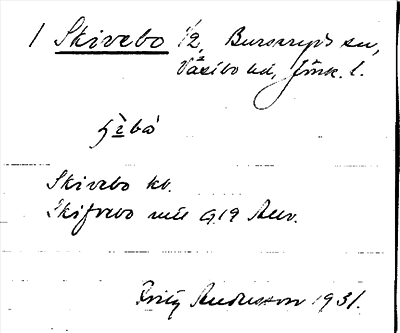 1 Skivebo 1/2, Burseryds sn,
Västbo hd, Jönk. l.
Skivebo kv.
Skifvebo 1919 Anv.
Fritz Andersson 1931.